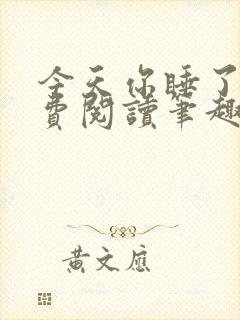 今天你睡了
費閱讀筆趣
黄文應